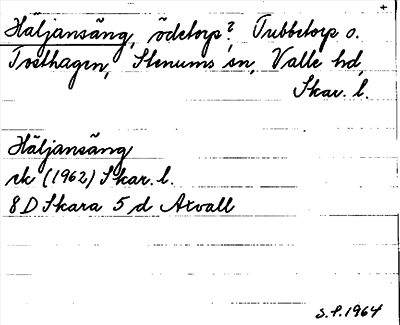 Häljansäng, ödetorp?, Tubbetorp o.
Tosthagen, Stenums sn, Valle hd,
Skar. l.
Häljansäng
rk (1962) Skar. l.
8D Skara 5 d Axvall
S.F. 1964